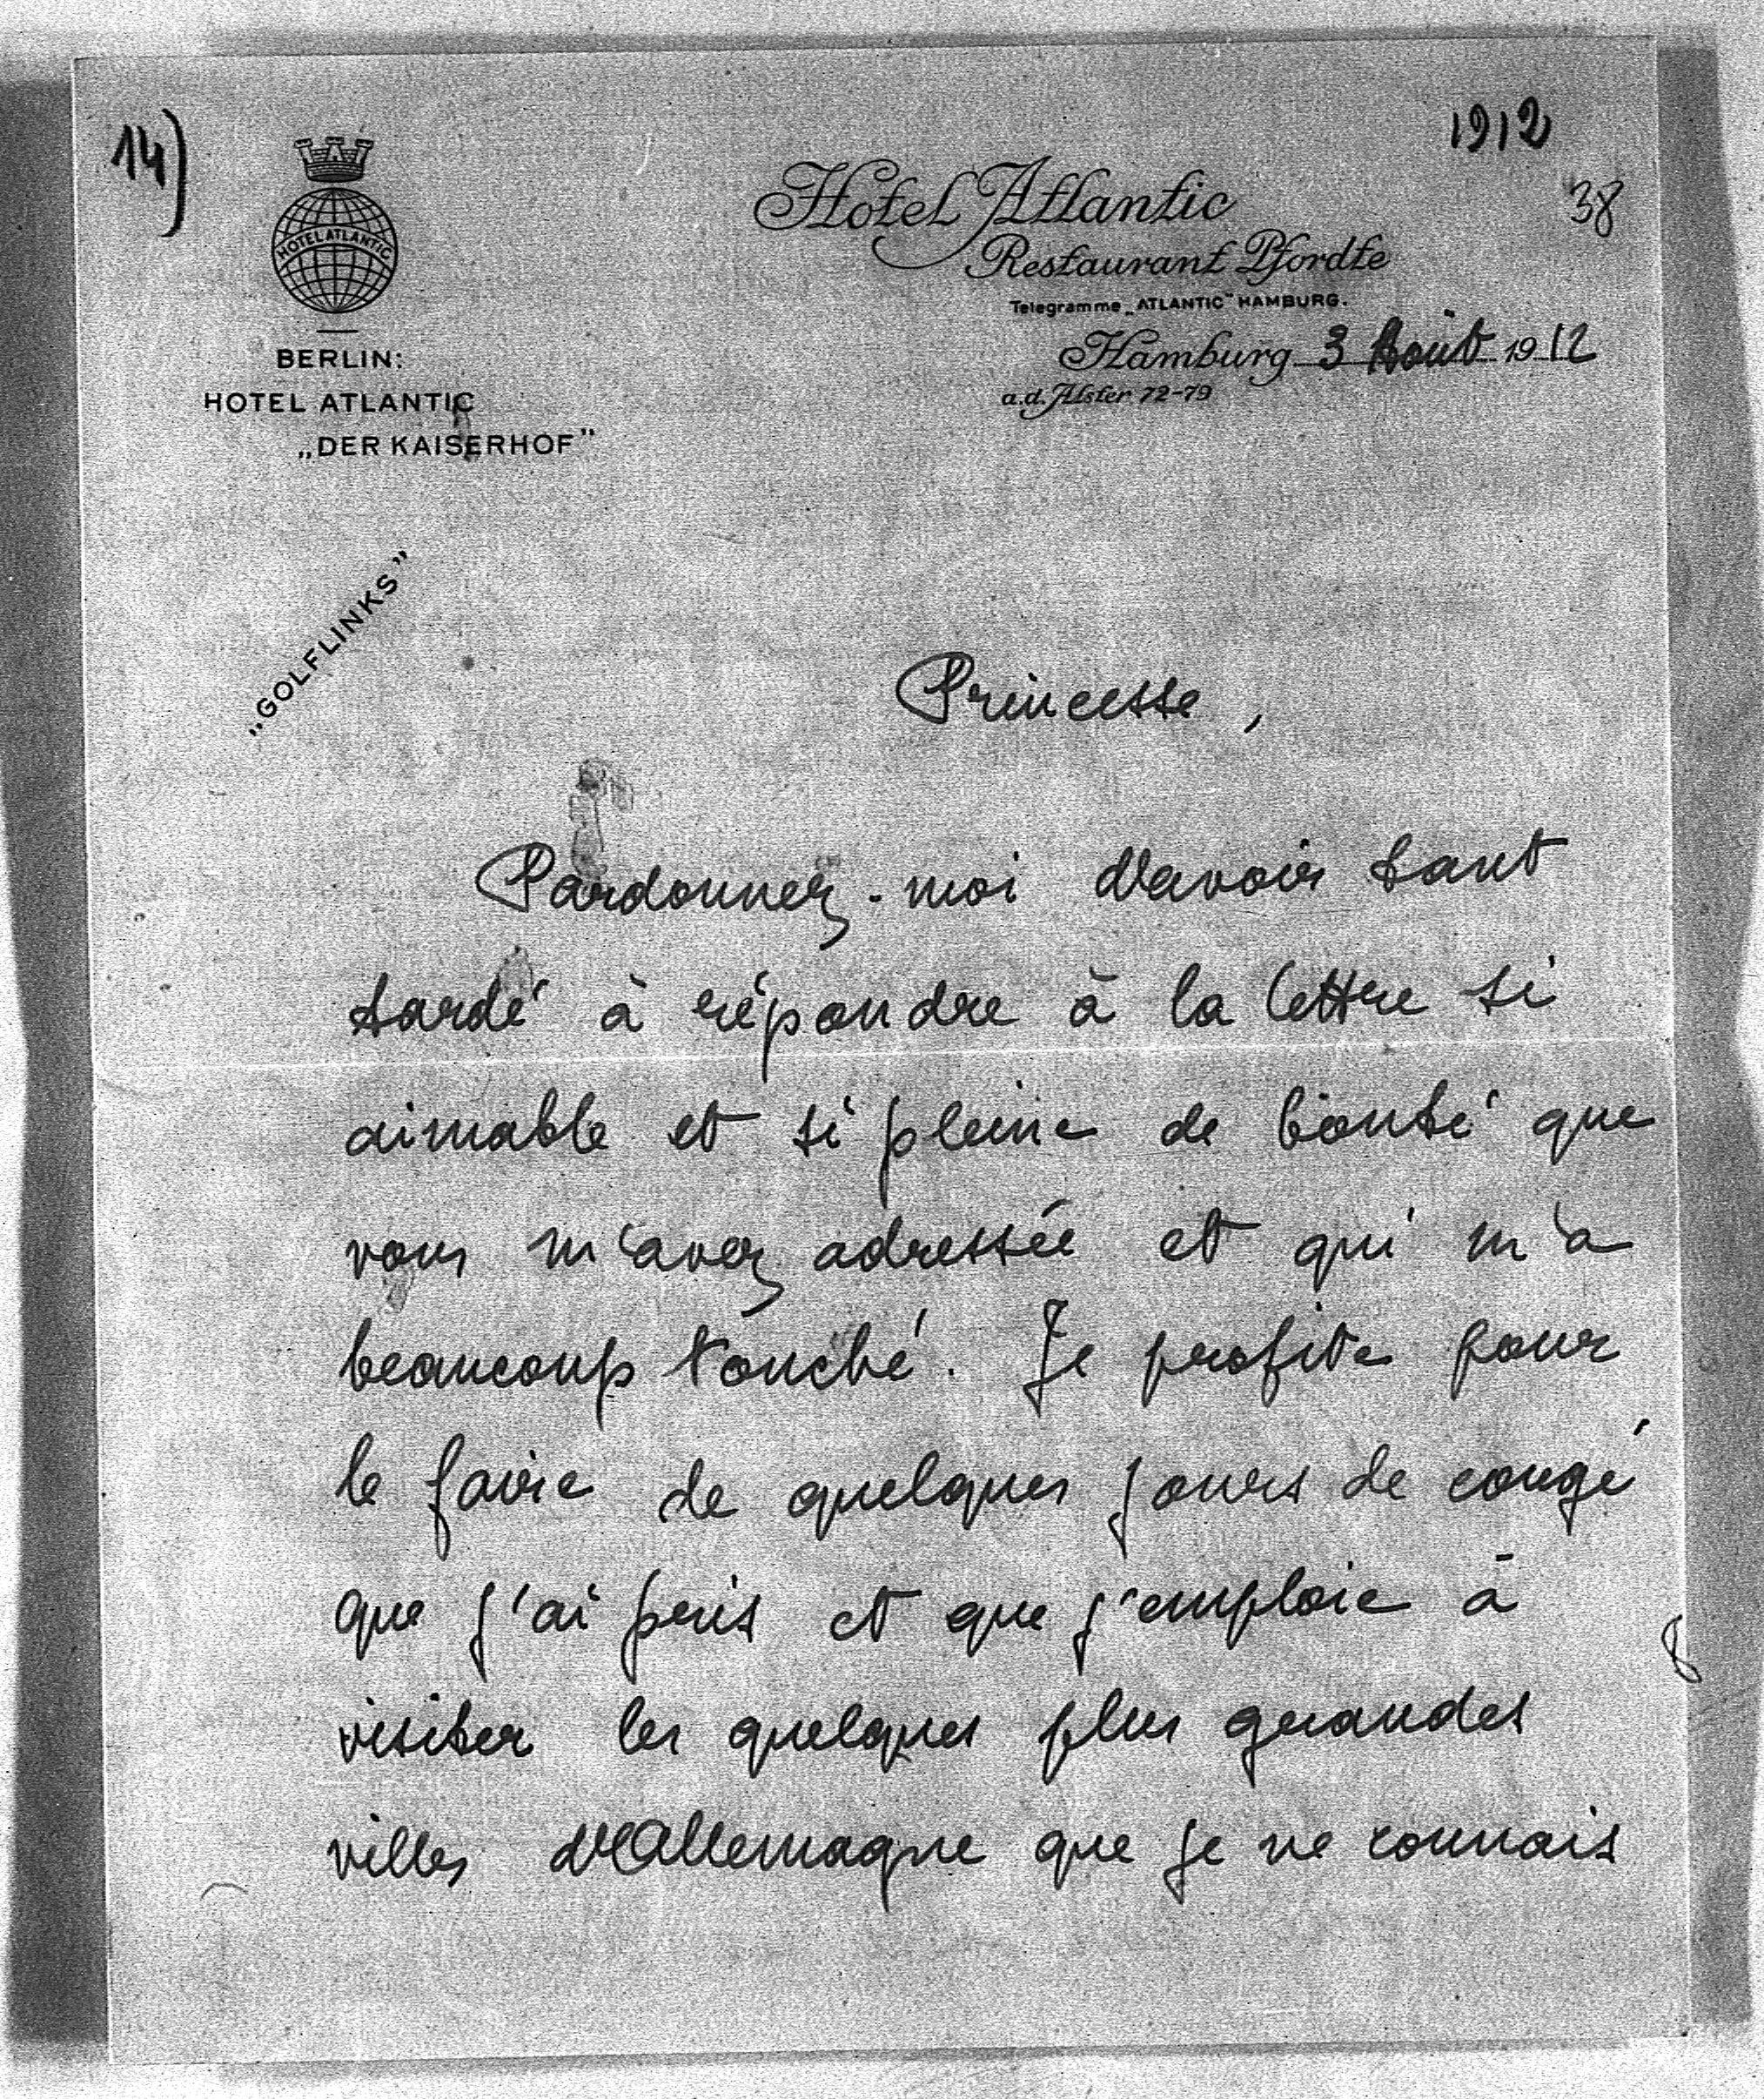 14)
1912
38
HOTEL ATLANTIC
Hotel Atlantic
Restaurant Pfordte
Telegramme „ATLANTIC" HAMBURG.
Hamburg 3 Août 1912
a.d. Alster 72-79
BERLIN:
HOTEL ATLANTIC
„DER KAISERHOF"
„GOLFLINKS"
Princesse,
Pardonnez-moi d'avoir tant
tardé à répondre à la lettre si
aimable et si pleine de bonté que
vous m'avez adressée et qui m'a
beaucoup touché. Je profite pour
le faire de quelques jours de congé
que j'ai pris et que j'emploie à
visiter les quelques plus grandes
villes d'Allemagne que je ne connais